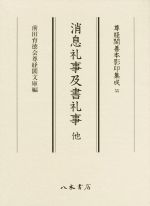 尊経閣善本影印集成
消息礼事及書礼事 他
前田育徳会尊経閣文庫編
八木書店